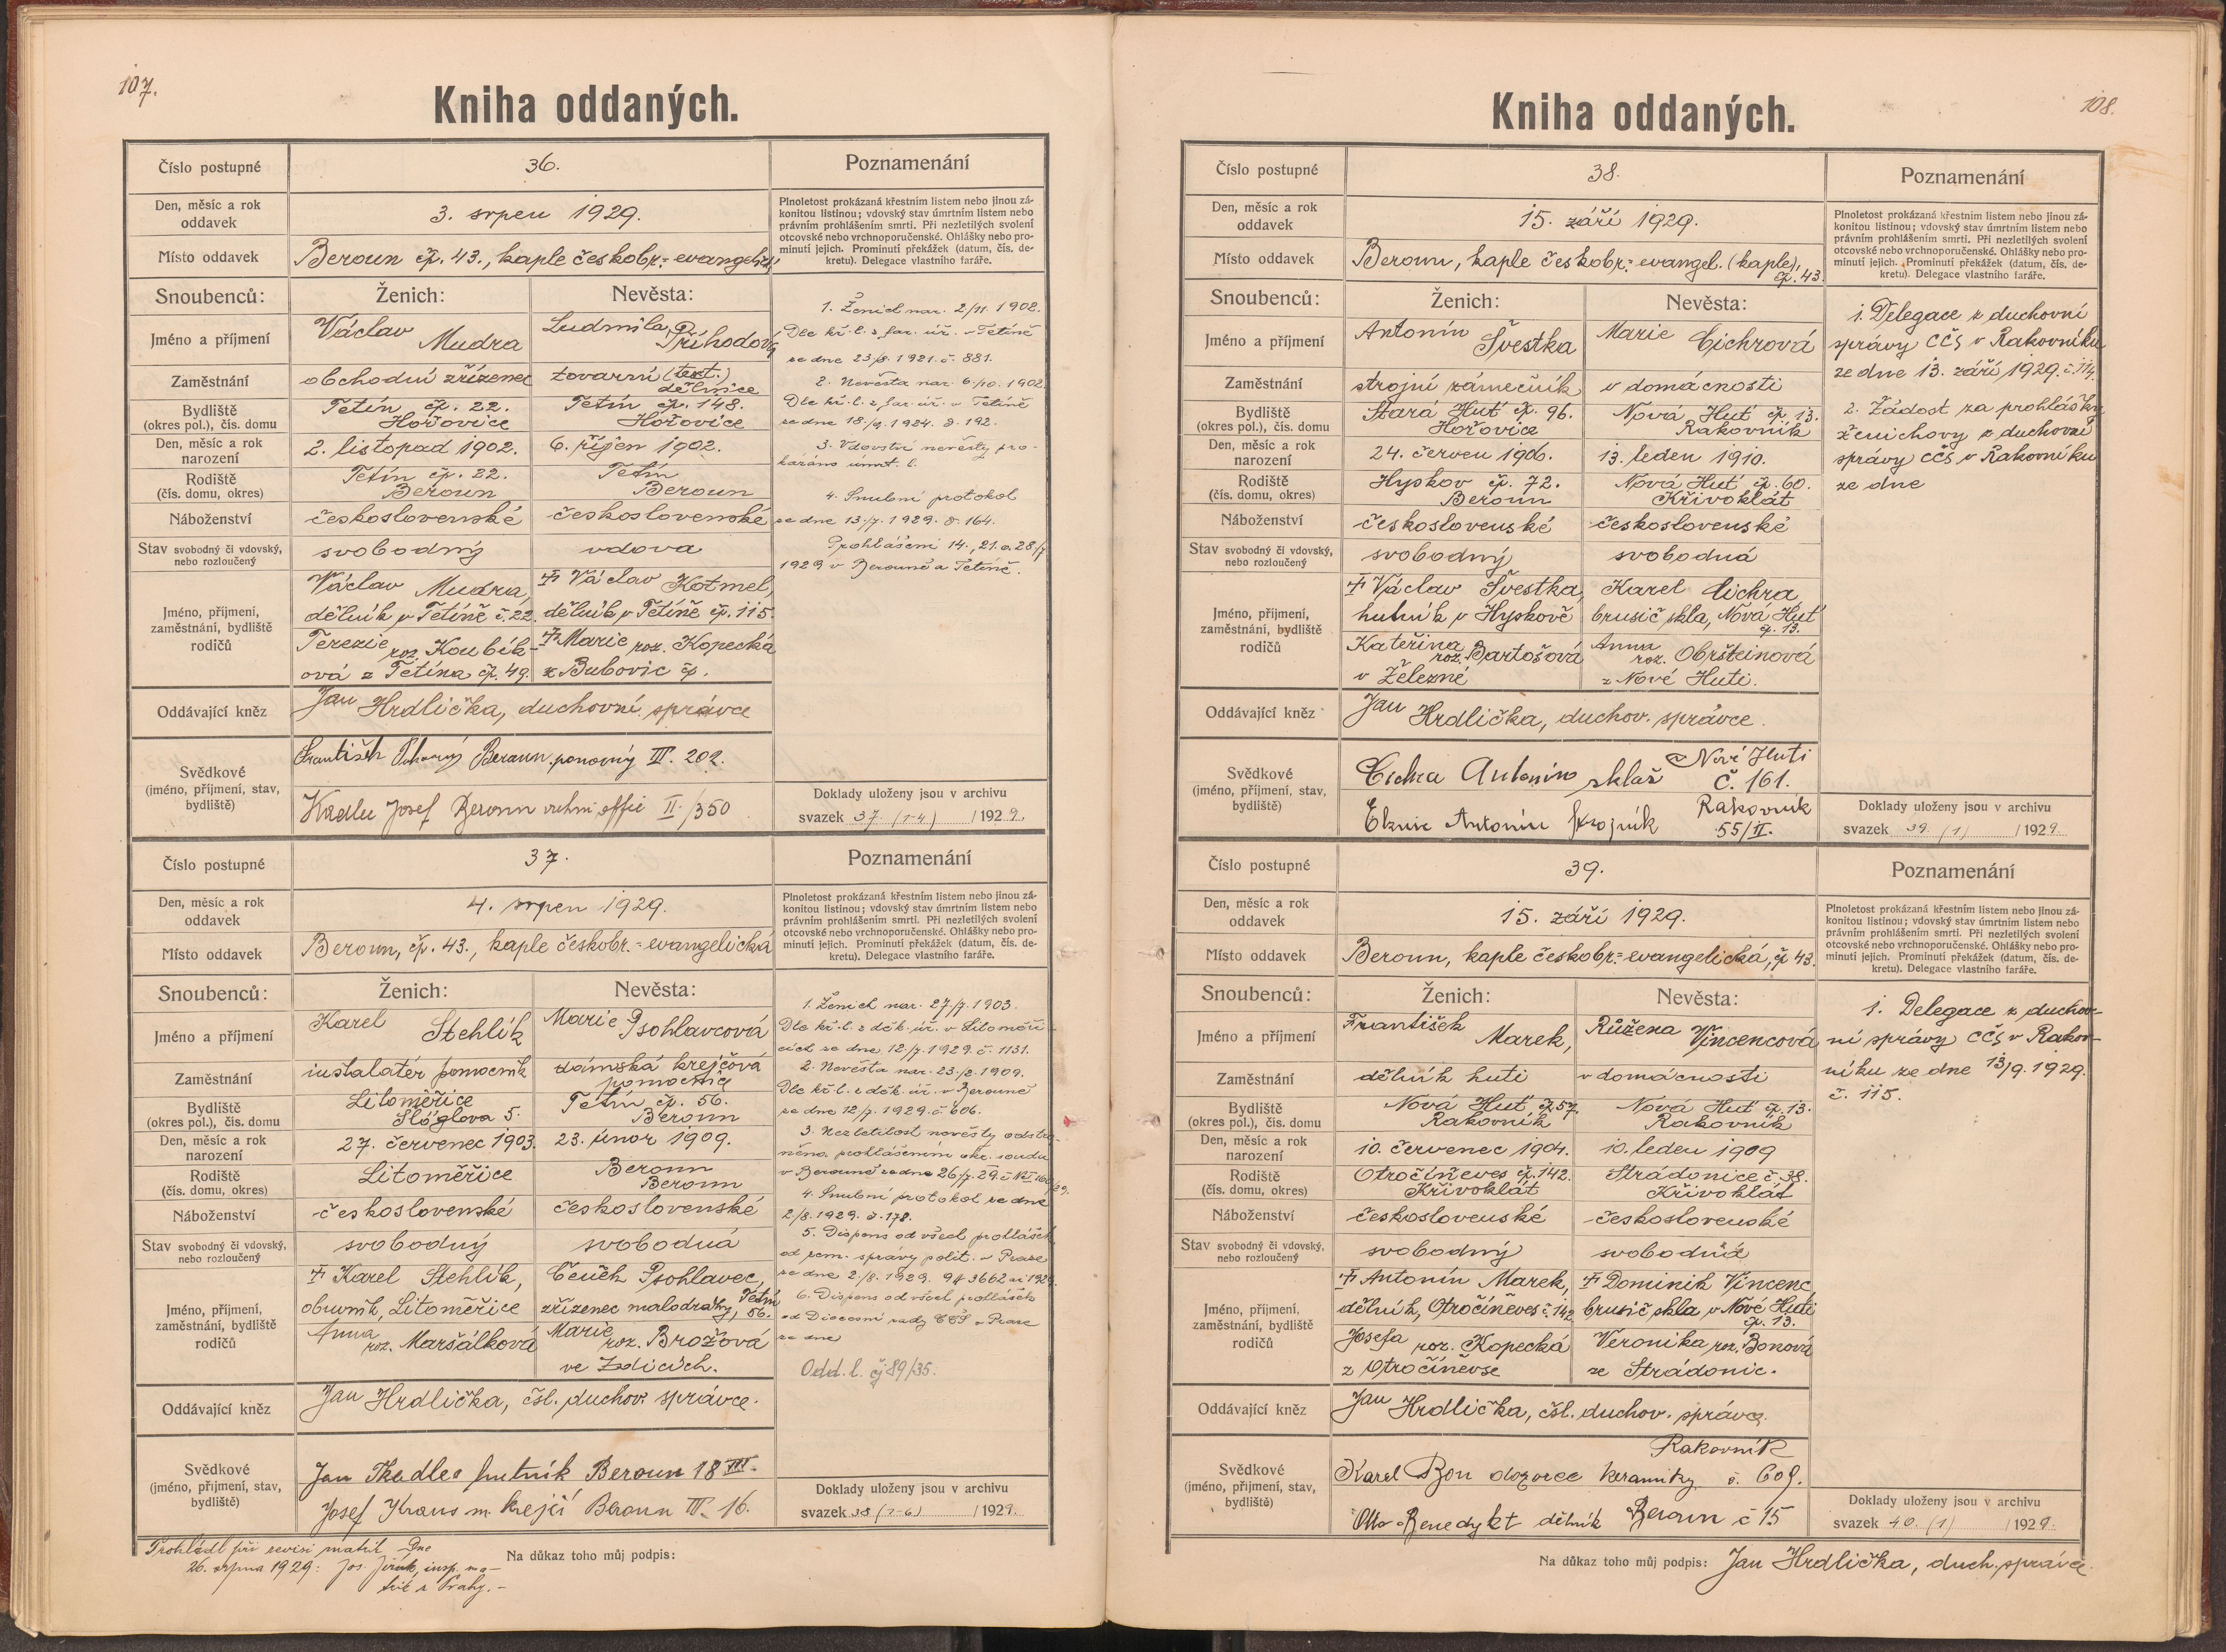 107.
Kniha oddaných.
Číslo postupné
36.
Poznamenání
Den, měsíc a rok
oddavek
3. srpen 1929.
Plnoletost prokázaná křestním listem nebo jinou zá-
konitou listinou; vdovský stav úmrtním listem nebo
právním prohlášením smrti. Při nezletilých svolení
otcovské nebo vrchnoporučenské. Ohlášky nebo pro-
minutí jejich. Prominutí překážek (datum, čís. de-
kretu). Delegace vlastního faráře.
Místo oddavek
Beroun čp. 43., kaple českobr.-evangelická
Snoubenců:
Ženich:
Nevěsta:
Jméno a příjmení
Václav Mudra
Ludmila Příhodová
Zaměstnání
obchodní zřízenec
tovární (text.)
dělnice
Bydliště
(okres pol.), čís. domu
Tetín čp. 22.
Hořovice
Tetín čp. 148.
Hořovice
Den, měsíc a rok
narození
2. listopad 1902.
6. říjen 1902.
Rodiště
(čís. domu, okres)
Tetín čp. 22.
Beroun
Tetín
Beroun
Náboženství
československé
československé
Stav svobodný či vdovský,
nebo rozloučený
svobodný
vdova
Jméno, příjmení,
zaměstnání, bydliště
rodičů
Václav Mudra,
dělník v Tetíně č. 22.
Terezie roz. Koubík-
ová z Tetína čp. 49.
† Václav Kotmel,
dělník v Tetíně čp. 115.
† Marie roz. Kopecká
z Bubovic čp.
Oddávající kněz
Jan Hrdlička, duchovní správce
Svědkové
(jméno, příjmení, stav,
bydliště)
František Beroun III. 202.
Josef Beroun II./350
1. Ženich nar. 2/11. 1902.
Dle kř. l. z far. úř. v Tetíně
ze dne 23/8. 1921. č. 881.
2. Nevěsta nar. 6/10. 1902.
Dle kř. l. z far. úř. v Tetíně
ze dne 18/9. 1924. č. 192.
3. Vdovství nevěsty pro-
kázáno úmrt. l.
4. Snubní protokol
ze dne 13./7. 1929. č. 164.
Prohlášení 14., 21. a 28/7
1929 v Berouně a Tetíně.
Doklady uloženy jsou v archivu
svazek 37. (1-4) /1929.
Číslo postupné
37.
Poznamenání
Den, měsíc a rok
oddavek
4. srpen 1929.
Plnoletost prokázaná křestním listem nebo jinou zá-
konitou listinou; vdovský stav úmrtním listem nebo
právním prohlášením smrti. Při nezletilých svolení
otcovské nebo vrchnoporučenské. Ohlášky nebo pro-
minutí jejich. Prominutí překážek (datum, čís. de-
kretu). Delegace vlastního faráře.
Místo oddavek
Beroun, čp. 43., kaple českobr.-evangelická
Snoubenců:
Ženich:
Nevěsta:
Jméno a příjmení
Karel Stehlík
Marie Psohlavcová
Zaměstnání
instalatér pomocník
dámská krejčová
pomocnice
Bydliště
(okres pol.), čís. domu
Litoměřice
Slóglova 5.
Tetín čp. 56.
Beroun
Den, měsíc a rok
narození
27. červenec 1903.
23. únor 1909.
Rodiště
(čís. domu, okres)
Litoměřice
Beroun
Beroun
Náboženství
československé
československé
Stav svobodný či vdovský,
nebo rozloučený
svobodný
svobodná
Jméno, příjmení,
zaměstnání, bydliště
rodičů
† Karel Stehlík,
obuvník, Litoměřice
Anna
roz. Maršálková
Čeněk Psohlavec,
zřízenec malodráhy, Tetín 56.
Marie
roz. Brožová
ve Zdicích.
Oddávající kněz
Jan Hrdlička, čsl. duchov. správce.
Svědkové
(jméno, příjmení, stav,
bydliště)
Jan hutník Beroun 18 III.
Josef Kraus m. krejčí Beroun III. 16.
1. Ženich nar. 27./7. 1903.
Dle kř. l. z děk. úř. v Litoměři-
cích ze dne 12./7. 1929. č. 1131.
2. Nevěsta nar. 23./2. 1909.
Dle kř. l. z děk. úř. v Berouně
ze dne 12/7. 1929. č. 606.
3. Nezletilost nevěsty odstra-
něna prohlášením okr. soudu
v Berouně ze dne 26/7. 29.
4. Snubní protokol ze dne
2/8. 1929. č. 178.
5. Dispens od všech prohlášek
od zem. správy polit. v Praze
ze dne 2/8. 1929.
6. Dispens od všech prohlášek
od Diecesní rady CČS v Praze
ze dne
Odd. l. čj 89/35.
Doklady uloženy jsou v archivu
svazek 38 (1-6) /1929.
Prohlédl při revisi matrik Dne
26. srpna 1929: Jos. Jirák, insp. ma-
trik z Prahy.-
Na důkaz toho můj podpis:
108.
Kniha oddaných.
Číslo postupné
38.
Poznamenání
Den, měsíc a rok
oddavek
15. září 1929.
Plnoletost prokázaná křestním listem nebo jinou zá-
konitou listinou; vdovský stav úmrtním listem nebo
právním prohlášením smrti. Při nezletilých svolení
otcovské nebo vrchnoporučenské. Ohlášky nebo pro-
minutí jejich. Prominutí překážek (datum, čís. de-
kretu). Delegace vlastního faráře.
Místo oddavek
Beroun, kaple českobr.-evangel. (kaple),
čp. 43.
Snoubenců:
Ženich:
Nevěsta:
Jméno a příjmení
Antonín Švestka
Marie Cichrová
Zaměstnání
strojní zámečník
v domácnosti
Bydliště
(okres pol.), čís. domu
Stará Huť čp. 96.
Hořovice
Nová Huť čp. 13.
Rakovník
Den, měsíc a rok
narození
24. červen 1906.
13. leden 1910.
Rodiště
(čís. domu, okres)
Hyskov čp. 72.
Beroun
Nová Huť čp. 60.
Křivoklát
Náboženství
československé
československé
Stav svobodný či vdovský,
nebo rozloučený
svobodný
svobodná
Jméno, příjmení,
zaměstnání, bydliště
rodičů
† Václav Švestka,
hutník v Hyskově
Kateřina
roz. Bartošová
v Železné
Karel Cichra
brusič skla, Nová Huť
čp. 13.
Anna
roz. Obršteinová
z Nové Huti.
Oddávající kněz
Jan Hrdlička, duchov. správce.
Svědkové
(jméno, příjmení, stav,
bydliště)
Cichra Antonín sklař v Nové Huti
č. 161.
Antonín strojník Rakovník
55/II.
1. Delegace z duchovní
správy CČS v Rakovníku
ze dne 13. září 1929. č. 114.
2. Žádost za prohlášky
ženichovy z duchovní
správy CČS v Rakovníku
ze dne
Doklady uloženy jsou v archivu
svazek 39. (1) /1929.
Číslo postupné
39.
Poznamenání
Den, měsíc a rok
oddavek
15. září 1929.
Plnoletost prokázaná křestním listem nebo jinou zá-
konitou listinou; vdovský stav úmrtním listem nebo
právním prohlášením smrti. Při nezletilých svolení
otcovské nebo vrchnoporučenské. Ohlášky nebo pro-
minutí jejich. Prominutí překážek (datum, čís. de-
kretu). Delegace vlastního faráře.
Místo oddavek
Beroun, kaple českobr.-evangelická, čp 43.
Snoubenců:
Ženich:
Nevěsta:
Jméno a příjmení
František Marek,
Růžena Vincencová
Zaměstnání
dělník huti
v domácnosti
Bydliště
(okres pol.), čís. domu
Nová Huť čp 57.
Rakovník
Nová Huť čp. 13.
Rakovník
Den, měsíc a rok
narození
10. červenec 1904.
10. leden 1909
Rodiště
(čís. domu, okres)
Otročíněves čp. 142.
Křivoklát
Strádonice č. 38.
Křivoklát
Náboženství
československé
československé
Stav svobodný či vdovský,
nebo rozloučený
svobodný
svobodná
Jméno, příjmení,
zaměstnání, bydliště
rodičů
† Antonín Marek,
dělník, Otročíněves č. 142
Josefa roz. Kopecká
z Otročíněvse
† Dominik Vincenc
brusič skla v Nové Huti
čp. 13.
Veronika roz. Bonová
ze Strádonic.
Oddávající kněz
Jan Hrdlička, čsl. duchov. správce.
Svědkové
(jméno, příjmení, stav,
bydliště)
Rakovník
Karel Bon dozorce keramiky č. 609.
Otto Benedykt dělník Beroun č 15
1. Delegace z duchov-
ní správy CČS v Rakov-
níku ze dne 13/9. 1929.
č. 115.
Doklady uloženy jsou v archivu
svazek 40. (1) /1929.
Na důkaz toho můj podpis: Jan Hrdlička, duch. správce.